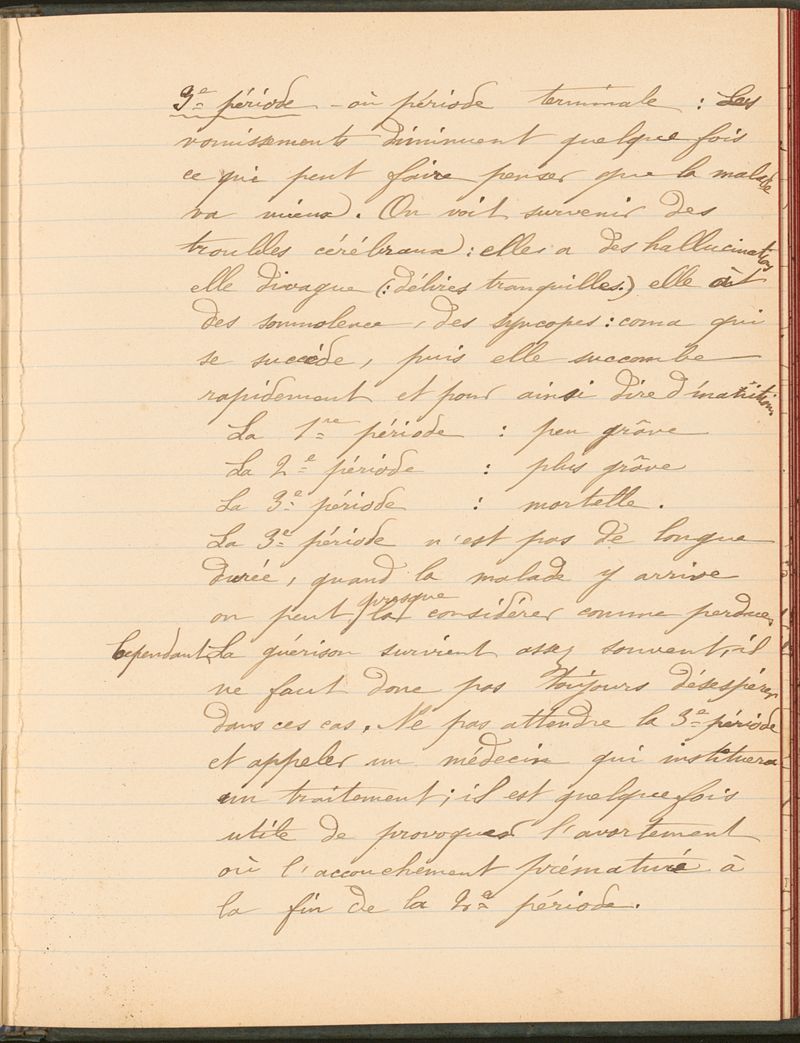 3e période - où période terminale : Les
vomissements diminuent quelque fois
ce qui peut faire penser que la malade
va mieux. On voit survenir des
troubles cérébraux : elle a des hallucinations
elle divague (: délires tranquilles.) elle a
des somnolence, des syncopes : coma qui
se succède, puis elle succombe
rapidement et pour ainsi dire d'inanition
La 1re période : peu grâve
La 2e période : plus grâve
La 3e période : mortelle.
La 3e période n'est pas de longue
durée, quand la malade y arrive
on peut presque la considérer comme perdue
Cependant, la guérison survient assez souvent, il
ne faut donc pas toujours désespérer
dans ces cas. Ne pas attendre la 3e période
et appeler un médecin qui instituera
un traitement ; il est quelque fois
utile de provoquer l'avortement
où l'accouchement prématuré à
la fin de la 2e période.